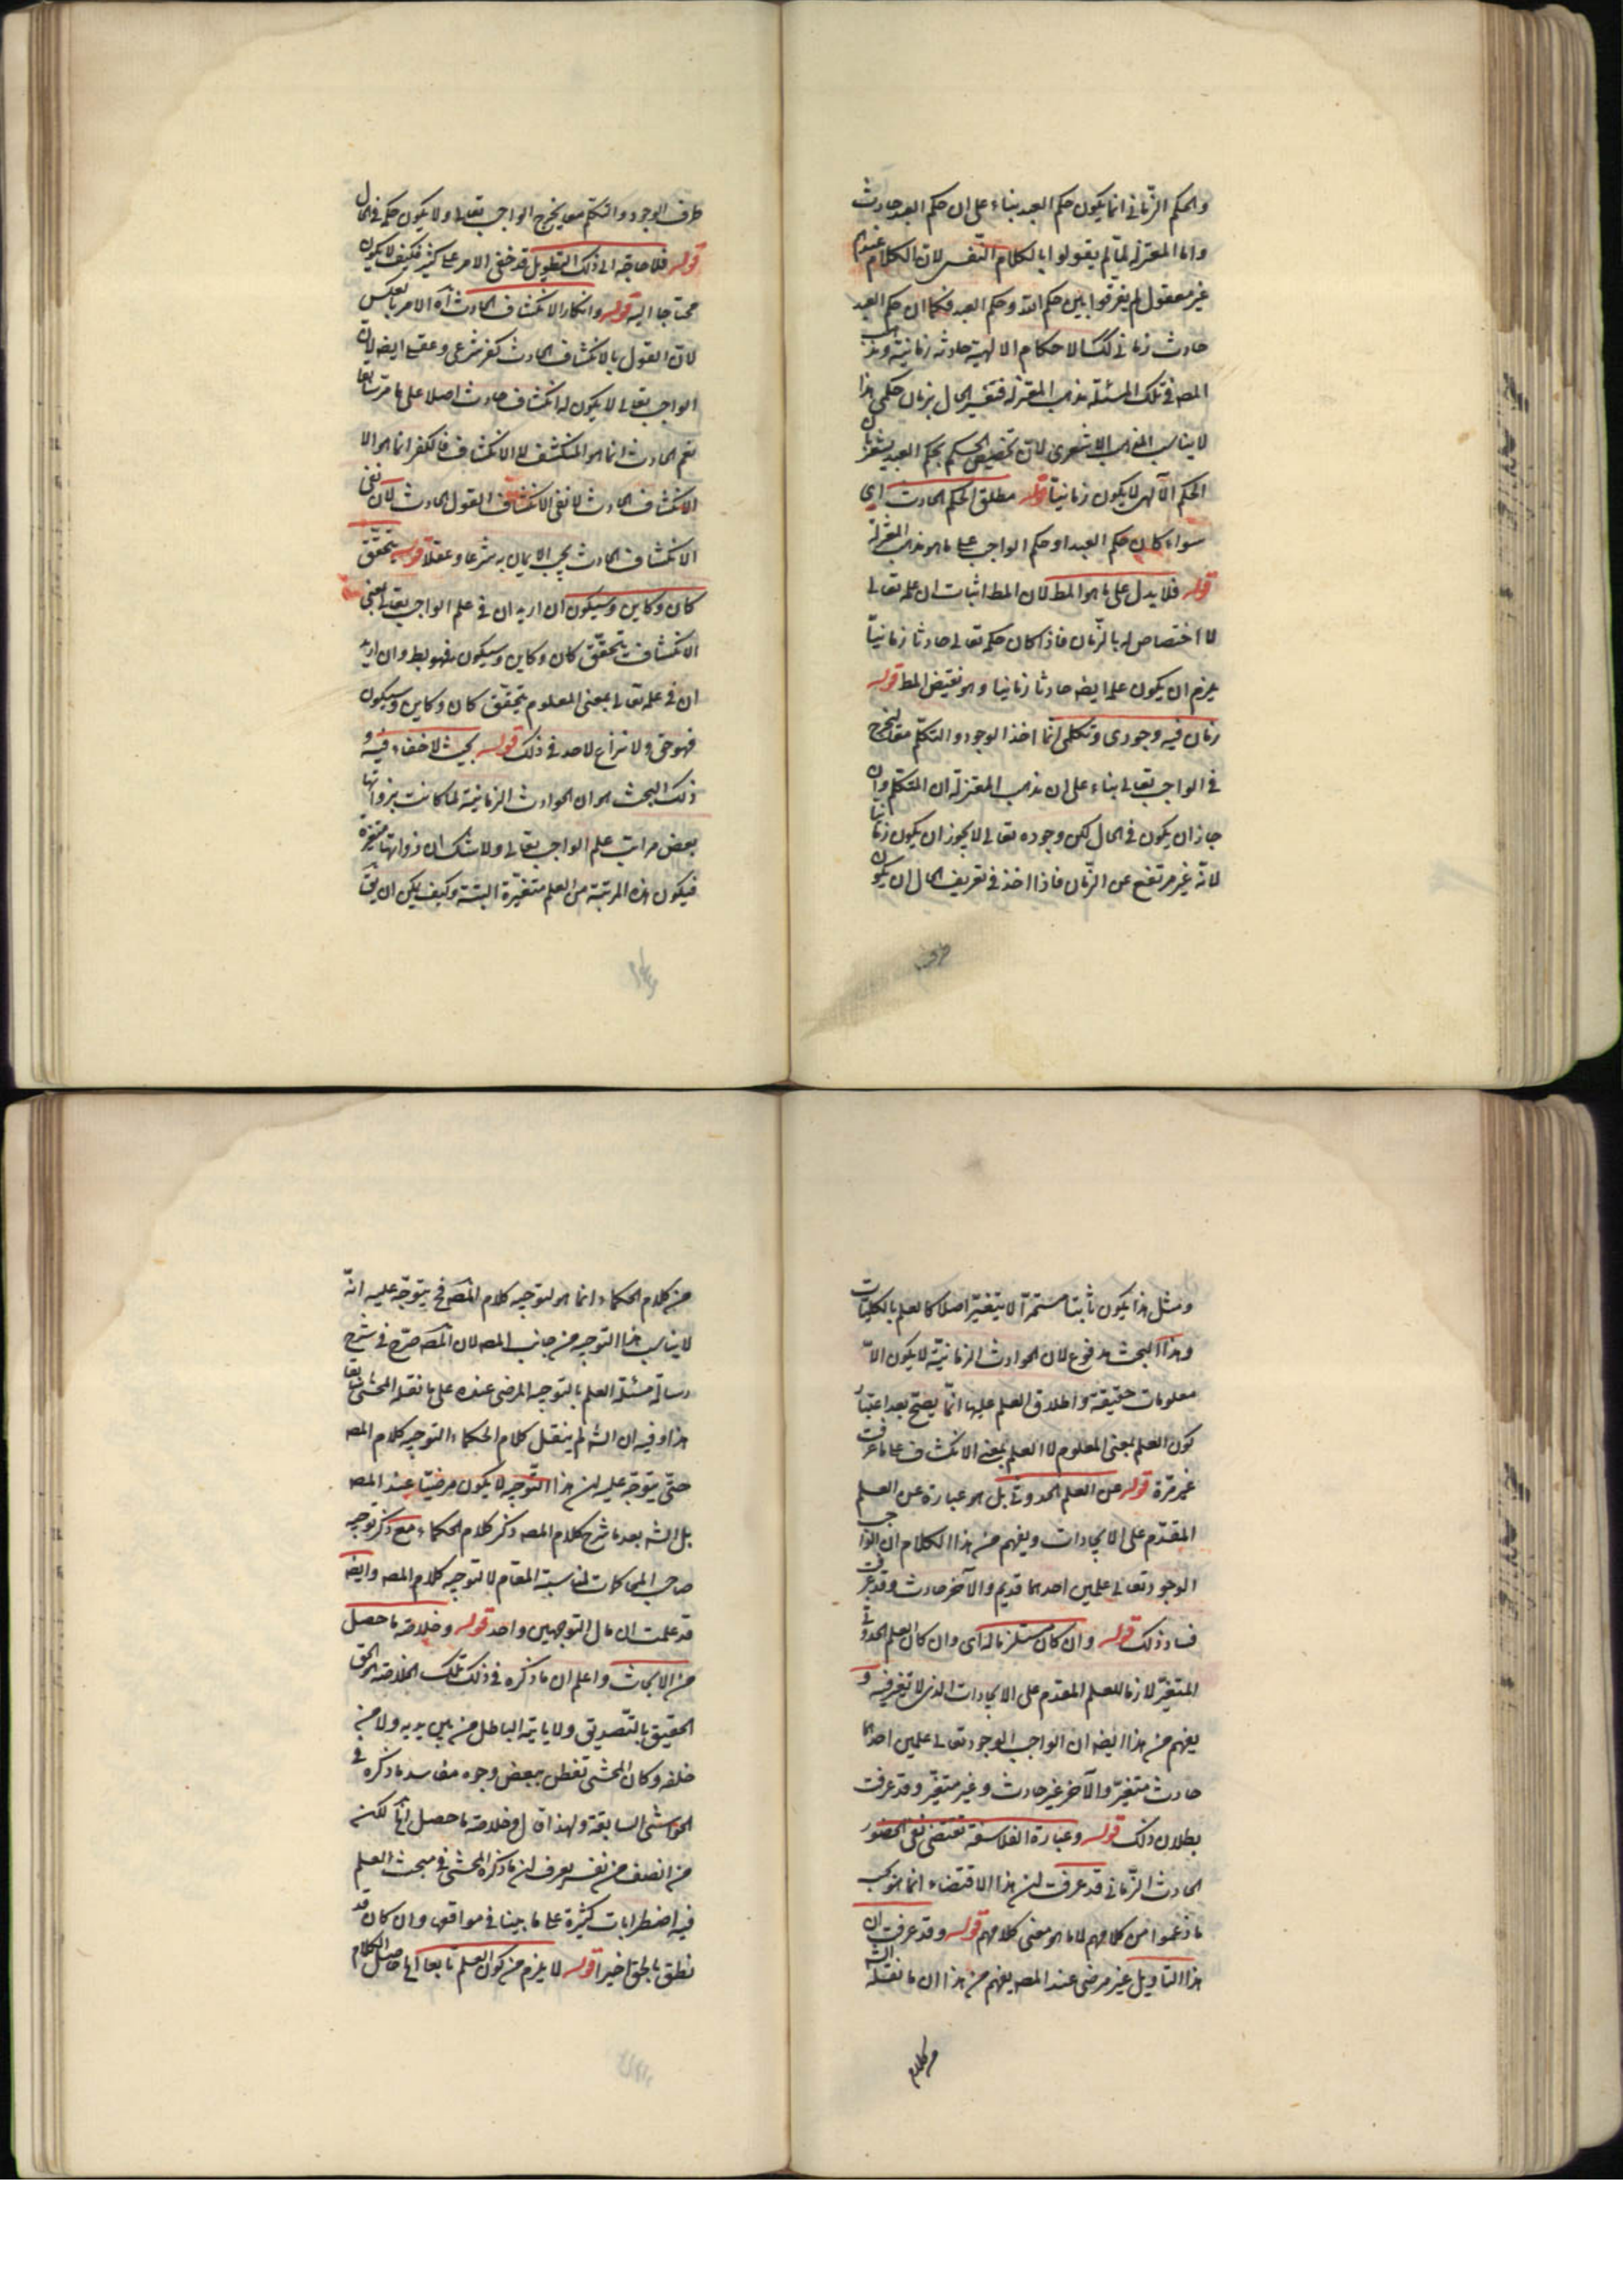 والحكم الزّمانى انما يكون حكم العبد بناء على ان حكم العبد حادث
واما المعتزلة لمّا لم يقولوا بالكلام النّفسى لان الكلام عندهم
غير معقول لم يفرقوا بين حكم اللّه وحكم العبد فكما ان حكم العبد
حادث زمانى كك الاحكام الالهية حادثة زمانية ومذهب
المصه فى تلك المسئلة مذهب المعتزلة فتفسير الحال بزمان حكمى هذا
لا يناسب المذهب الاشعرى لان تخصيص الحكم بحكم العبد يشعر بان
الحكم الآلهى لا يكون زمانيّا قوله مطلق الحكم الحادث اى
سواء كان حكم العبد او حكم الواجب على ما هو مذهب المعتزلة
قوله فلا يدل على ما هو المط لان المط اثبات ان علمه تعالى
لا اختصاص له بالزّمان فاذا كان حكمه تعالى حادثا زمانيّا
يلزم ان يكون علمه ايضه حادثا زمانيا وهو نقيض المط قوله
زمان فيه وجودى وتكلمى انّما اخذ الوجود والتكلّم معا ليخرج
فى الواجب تعالى بناء على ان مذهب المعتزلة ان المتكلم وان
جاز ان يكون فى الحال لكن وجوده تعالى لا يجوز ان يكون زمانيا
لانه غير مرتفع عن الزّمان فاذا اخذ فى تعريف الحال ان يكون
ظرف الوجود والتكلم معا يخرج الواجب تعالى ولا يكون حكمه فى الحال
قوله فلا حاجة الى ذلك التطويل قد خفى الامر على كثير فكيف لا يكون
محتاجا اليه قوله وانكار الانكشاف الحادث آه الامر بالعكس
لان القول بالانكشاف الحادث كفر شرعى وعقلى ايضه لان
الواجب تعالى لا يكون له انكشاف حادث اصلا على ما مرّ سابقا
نعم الحادث انما هو المنكشف لا الانكشاف فالكفر انما هو الا
الانكشاف الحادث لا نفى الانكشاف القول الحادث لان نفى
الانكشاف الحادث يجب الايمان به شرعا وعقلا قوله يتحقّق
كان وكاين وسيكون ان اريد ان فى علم الواجب تعالى بمعنى
الانكشاف يتحقّق كان وكاين وسيكون فهو بط وان اريد
ان فى علمه تعالى بمعنى المعلوم يتحقق كان وكاين وسيكون
فهو حق ولا نزاع لاحد فى ذلك قوله بحث لا خفاء فيه و
ذلك البحث هو ان الحوادث الزمانيّة لما كانت بذواتها
بعض مراتب علم الواجب تعالى ولا شك ان ذواتها متغيرة
فيكون هذه المرتبة من العلم متغيّرة البتّة وكيف يمكن ان يق
ومثل هذا يكون ثابتا مستمرّا لا يتغيّر اصلا كالعلم بالكليّات
وهذا البحث مدفوع لان الحوادث الزمانيّة لا يكون الاّ
معلومات حقيقة واطلاق العلم عليها انّما يصحّ بعد اعتبار
كون العلم بمعنى المعلوم لا العلم بمعنى الانكشاف على ما عرفت
غير مرّة قوله عن العلم الحدوثى بل هو عبارة عن العلم
المقدّم على الايجادات ويفهم من هذا الكلام ان الواجب
الوجود تعالى علمين احدهما قديم والآخر حادث وقد عرفت
فساد ذلك قوله وان كان مستلزما له اى وان كان العلم الحدوثى
المتغيّر لازما للعلم المقدّم على الايجادات الذى لا تغيّر فيه و
يفهم من هذا ايضه ان الواجب الوجود تعالى علمين احدهما
حادث متغيّر والآخر غير حادث وغير متغيّر وقد عرفت
بطلان ذلك قوله وعبارة الفلاسفة تقتضى نفى الحضور
الحادث الزّمانى قد عرفت ان هذا الاقتضاء انما هو بحسب
ما زعموا من كلامهم لا ما هو معنى كلامهم قوله وقد عرفت ان
هذا التاويل غير مرضى عند المصه يفهم من هذا ان ما نقله الشه
من كلام
من كلام الحكماء انما هو لتوجيه كلام المصه فح يتوجّه عليه انّه
لا يناسب هذا التوجيه من جانب المصه لان المصه صرّح فى شرح
رسالة مسئلة العلم بالتوجيه المرضى عنده على ما نقله المحشى سابقا
هذا وفيه ان الشه لم ينقل كلام الحكماء لتوجيه كلام المصه
حتّى يتوجّه عليه ان هذا التّوجيه لا يكون مرضيّا عند المصه
بل الشه بعد ما شرح كلام المصه ذكر كلام الحكماء مع ذكر توجيه
صاحب المحاكمات لمناسبة المقام لا لتوجيه كلام المصه وايضه
قد علمت ان مال التوجيهين واحد قوله وخلاصة ما حصل
من الابحاث واعلم ان ما ذكره فى ذلك تلك الخلاصة هو الحق
الحقيق بالتّصديق ولا ياتيه الباطل من بين يديه ولا من
خلفه وكان المحشى تفطن ببعض وجوه مفاسد ما ذكره فى
الحواشى السابقة ولهذا قال وخلاصة ما حصل آه لكن
من انصف من نفسه يعرف ان ما ذكره المحشى فى مبحث العلم
فيه اضطرابات كثيرة على ما بينا فى مواقعها وان كان قد
نطق بالحق اخيرا قوله لا يلزم من كون العلم تابعا آه حاصل الكلام